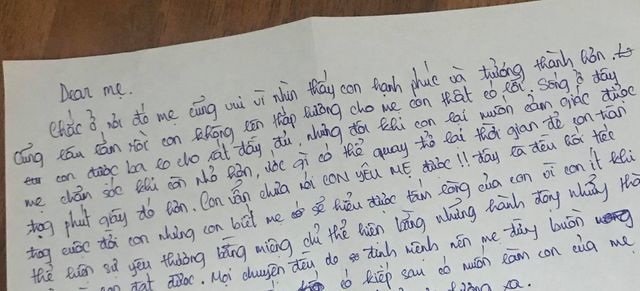 Dear mẹ.
Chắc ở nơi đó mẹ cũng vui vì nhìn thấy con hạnh phúc và trưởng thành hơn.
Cũng lâu lắm rồi con không lên thắp hương cho mẹ con thật có lỗi. Sống ở đây
con được ba lo cho rất đầy đủ, nhưng đôi khi con lại muốn cảm giác được
mẹ chăm sóc khi còn nhỏ hơn, ước gì có thể quay trở lại thời gian để con trân
trọng phút giây đó hơn. Con vẫn chưa nói CON YÊU MẸ được!! đây là điều hối tiếc
trong cuộc đời con nhưng con biết mẹ sẽ hiểu được tấm lòng của con vì con ít khi
thể hiện sự yêu thương bằng miệng chỉ thể hiện bằng những hành động những
con đạt được. Mọi chuyện đều do định mệnh nên mẹ đừng buồn
có kiếp sau có muốn làm con của mẹ
xa.